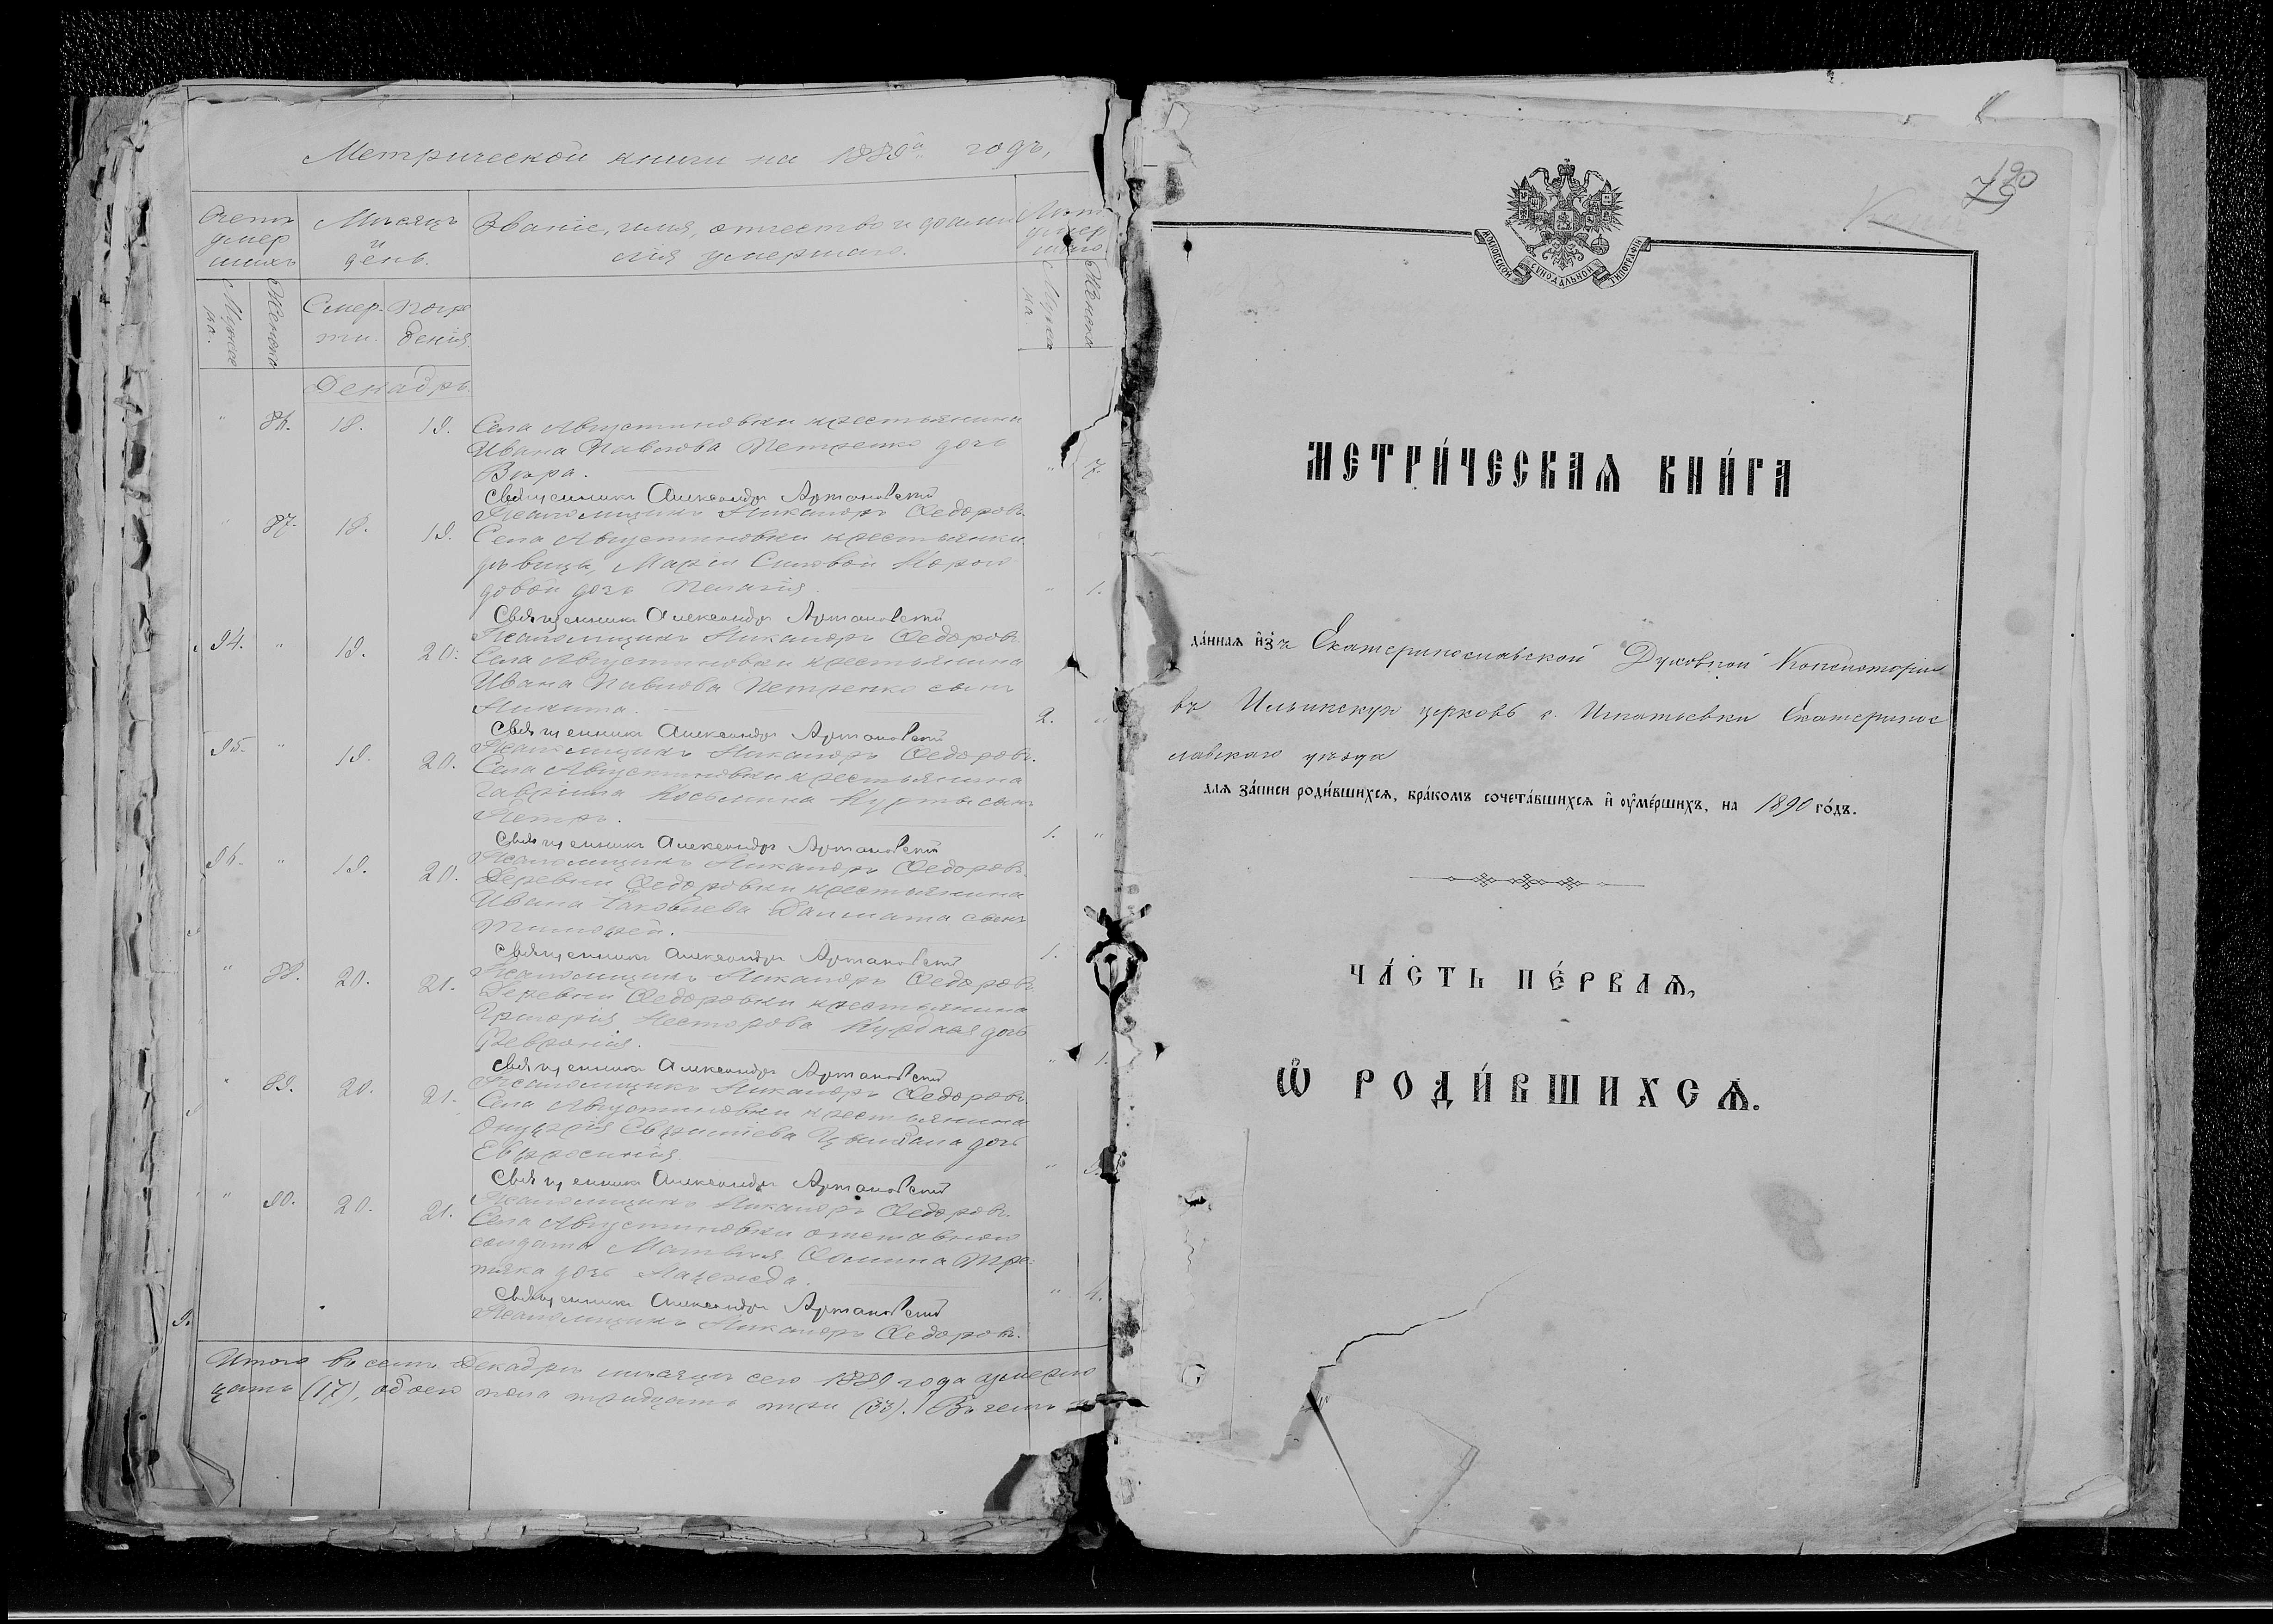 Метрической книги на 1889й годъ,
Счетъ умер шихъ
Мѣсяцъ и день.
Званіе, имя, отчество и фами лія умершаго.
Лѣта умер шаго
Мужеска. Женска
Смер- ти. Погре бенія.
Мужеска. Женска
Декабрь.
" 86. 18. 19. Села Августиновки крестьянина
Ивана Павлова Петренко дочь
Вѣра. " 7.
Священникъ Александръ Артановскій
Псаломщикъ Никаноръ Ѳедоровъ.
" 87. 18. 19. Села Августиновки крестьянки
дѣвицы, Маріи
довой дочь Пелагія " 1.
Священникъ Александръ Артановскій
Псаломщикъ Никаноръ Ѳедоровъ.
94. " 19. 20. Села Августиновки крестьянина
Ивана Павлова Петренко сынъ
Никита. 2. "
Священникъ Александръ Артановскій
Псаломщикъ Никаноръ Ѳедоровъ.
95. " 19. 20. Села Августиновки крестьянина
Гавріила Косьмина Курты сынъ
Петръ. 1. "
Священникъ Александръ Артановскій
Псаломщикъ Никаноръ Ѳедоровъ.
96. " 19. 20. Деревни Ѳедоровки крестьянина
Ивана Іаковлева сынъ
Тимоѳей. 1.
Священникъ Александръ Артановскій
Псаломщикъ Никаноръ Ѳедоровъ.
" 88. 20. 21. Деревни Ѳедоровки крестьянина
Григорія Несторова дочь
Февронія. " 1.
Священникъ Александръ Артановскій
Псаломщикъ Никаноръ Ѳедоровъ.
" 89. 20. 21. Села Августиновки крестьянина
Онуфрія дочь
Евфросинія "
Священникъ Александръ Артановскій
Псаломщикъ Никаноръ Ѳедоровъ.
" 90. 20. 21. Села Августиновки отставнаго
солдата Матвѣя Ѳомина Тре-
тяка дочь Надежда. " 4.
Священникъ Александръ Артановскій
Псаломщикъ Никаноръ Ѳедоровъ.
Итого въ семъ Декабрѣ мѣсяцѣ сего 1889 года умерло
цать (17), обоего пола тридцать три (33). Въ чемъ
190
МОСКОВСКОЙ СѴНОДАЛЬНОЙ ТИПОГРАФІИ
МЕТРИ́ЧЕСКАѦ КНИ́ГА
да́ннаѧ и҆зъ Екатеринославской Духовной Консисторіи
въ Ильинскую церковь с. Игнатьевки Екатеринос
лавскаго уѣзда
для за́писи роди́вшихсѧ, бра́комъ сочета́вшихсѧ и҆ ᲂу҆ме́ршихъ, на 1890 го́дъ.
ЧА́СТЬ ПЕ́РВАѦ,
Ѽ РОДИ́ВШИХСѦ.